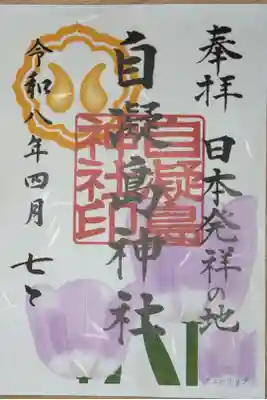 奉拝
日本発祥の地
自凝島神社
自凝島
神社印
令和八年四月七日